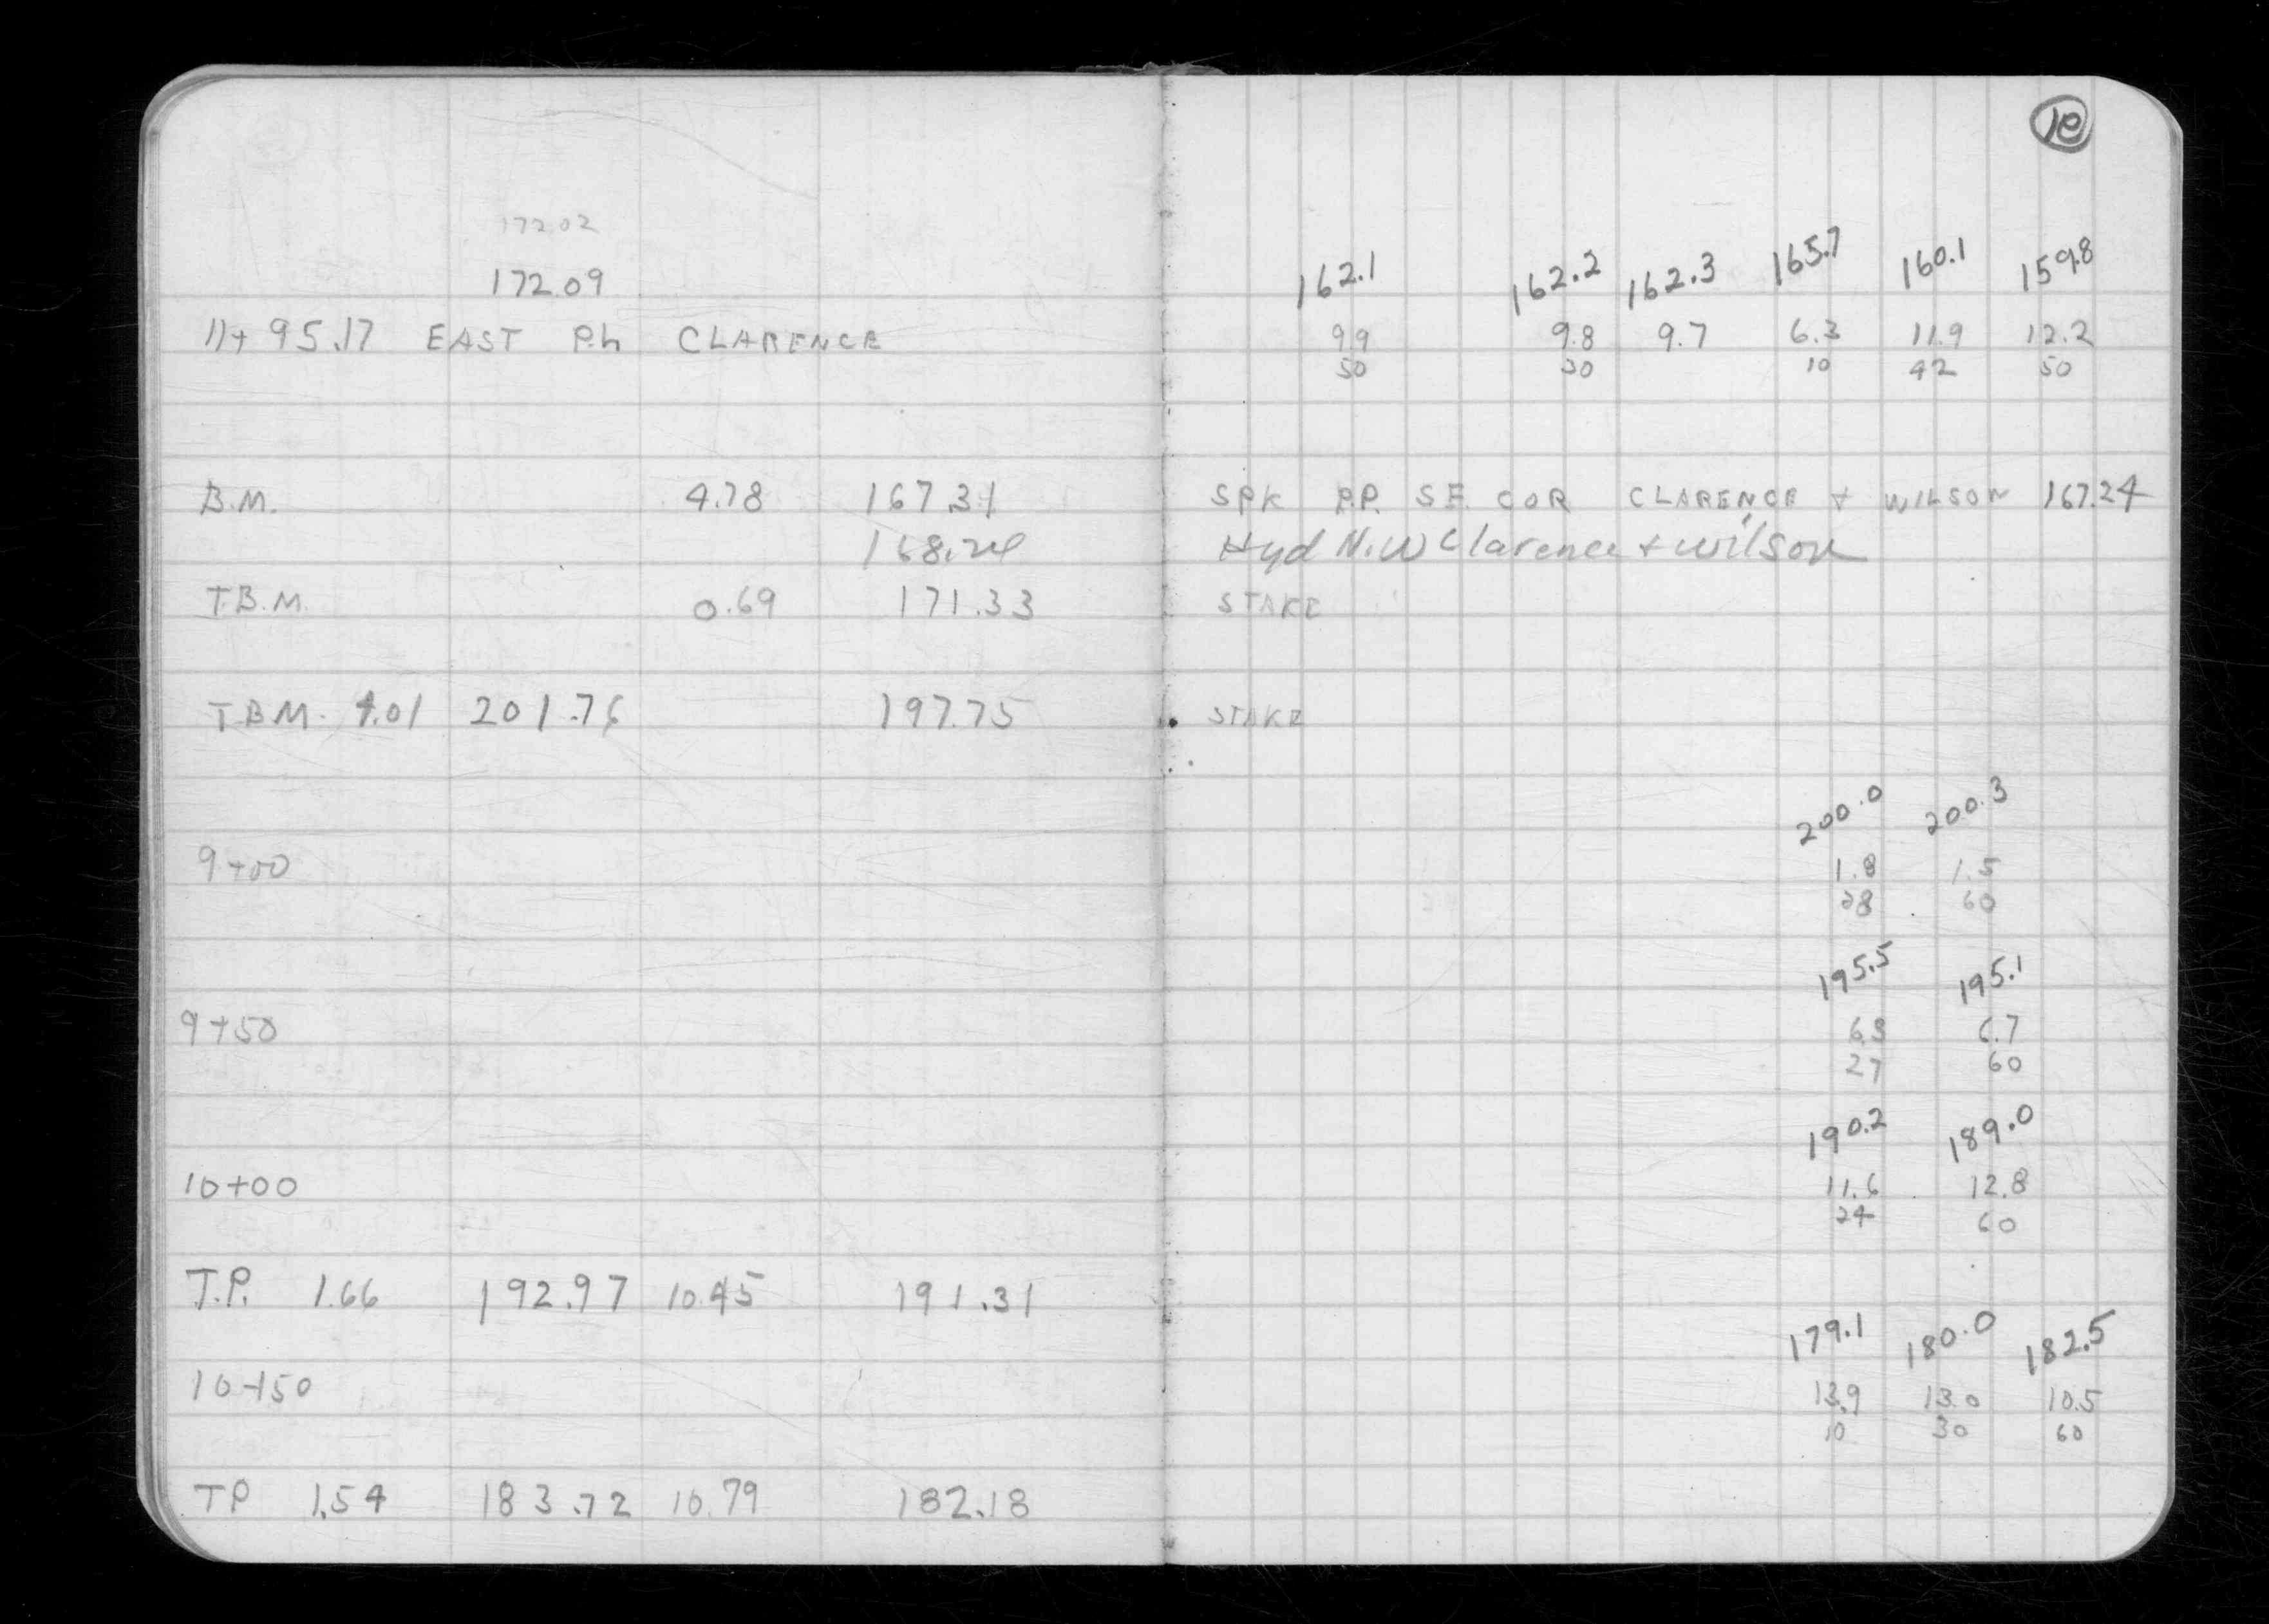 10
172.02
172.09
162.1 162.2 162.3 165.7 160.1 159.8
11+95.17 EAST P.L CLARENCE 9.9 9.8 9.7 6.3 11.9 12.2
50 30 10 42 50
B.M. 4.78 167.31 SPK P.P. SE. COR CLARENCE + WILSON 167.24
168.24 Hyd N.W Clarence + Wilson
T.B.M. 0.69 171.33 STAKE
T.B.M. 4.01 201.76 197.75 STAKE
200.0 200.3
9+00 1.8 1.5
28 60
195.5 195.1
9+50 6.3 6.7
27 60
190.2 189.0
10+00 11.6 12.8
24 60
T.P. 1.66 192.97 10.45 191.31
179.1 180.0 182.5
10+50 13.9 13.0 10.5
10 30 60
TP 1.54 183.72 10.79 182.18